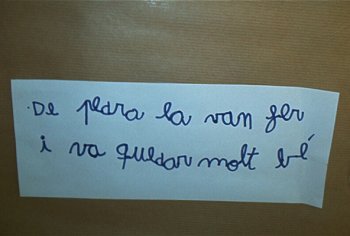 De pedra la van fer
i va quedar molt bé